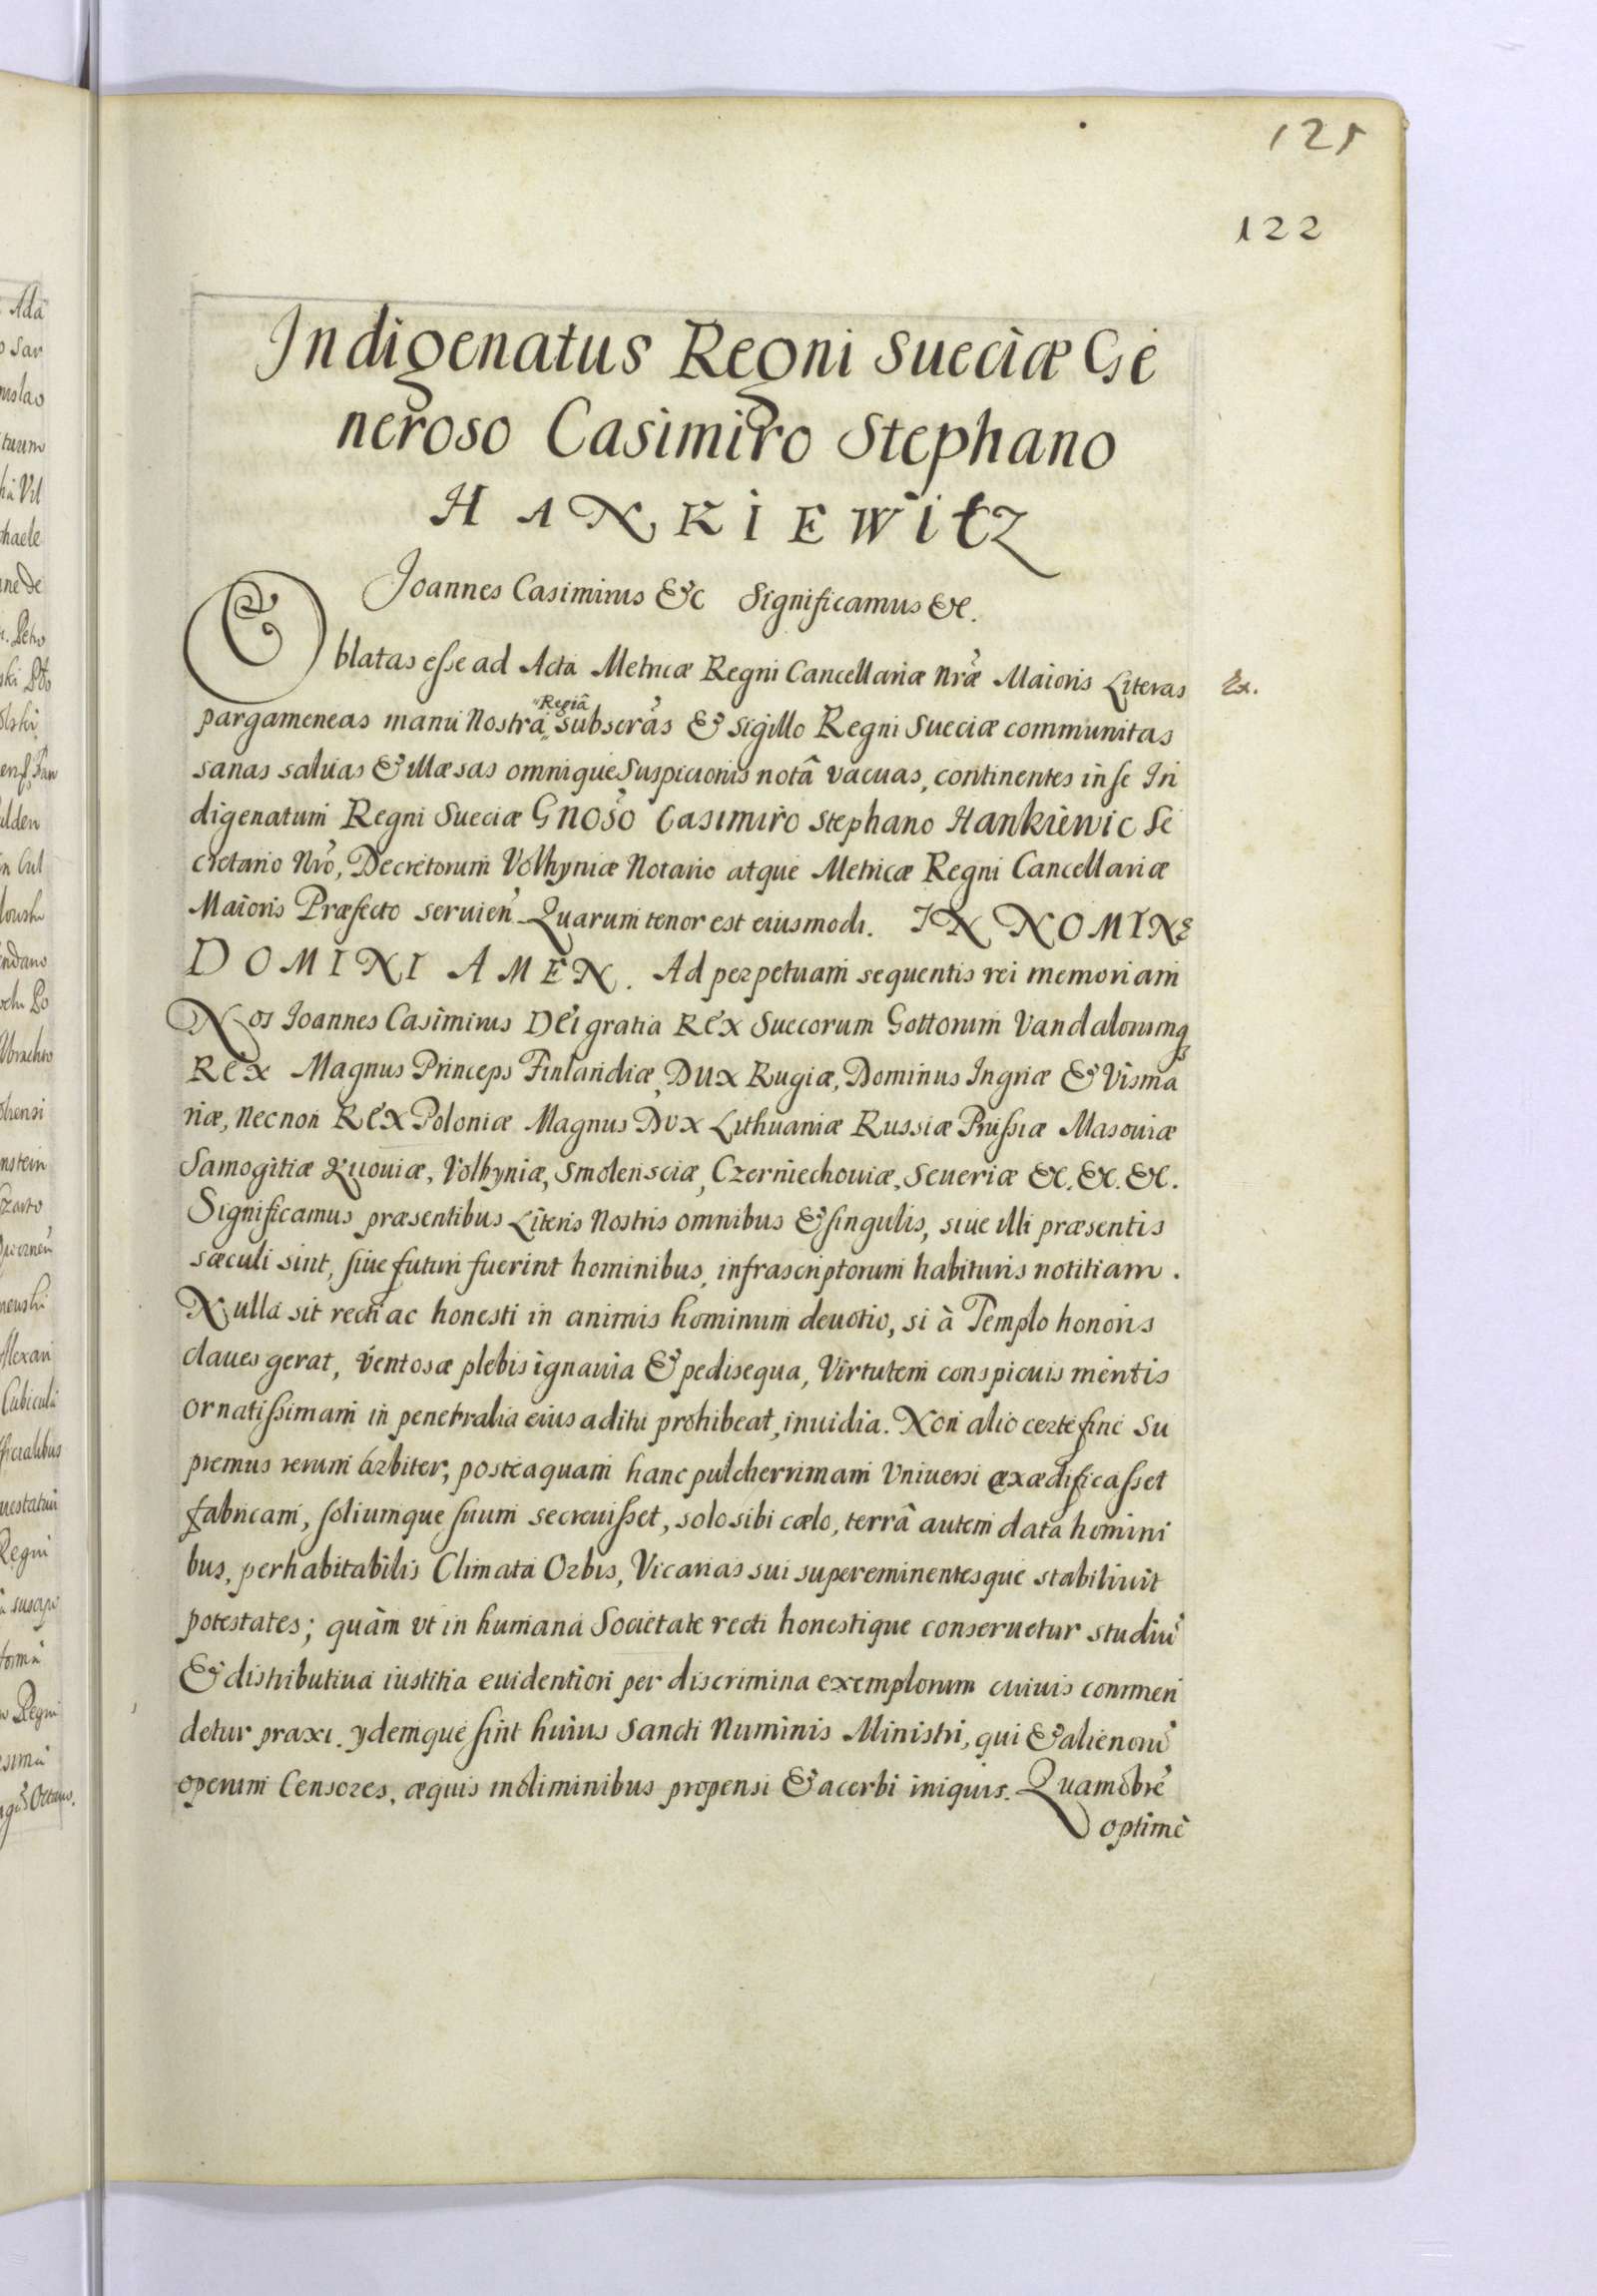 125
122
Indigenatus Regni Sueciæ Ge
neroso Casimiro Stephano
HANKIEWitz
Joannes Casimirus &c Significamus &c.
Oblatas esse ad Acta Metricæ Regni Cancellariæ nræ Maioris Literas Ex.
Regiâ
pargameneas manu Nostra subscras & sigillo Regni Sueciæ communitas
sanas saluas & illæsas omnique Suspicionis notâ vacuas, continentes in se In
digenatum Regni Sueciæ Gnoso Casimiro Stephano Hankiewic Se
cretario Nro, Decretorum Volhyniæ Notario atque Metricæ Regni Cancellariæ
Maioris Præfecto seruien. Quarum tenor est eiusmodi. IN NOMINE
DOMINI AMEN. Ad perpetuam sequentis rei memoriam
Nos Joannes Casimirus Dei gratia Rex Suecorum Gottorum Vandalorumq
Rex Magnus Princeps Finlandiæ, Dux Rugiæ, Dominus Ingriæ & Visma
riæ, necnon Rex Poloniæ Magnus Dux Lithuaniæ Russiæ Prussiæ Masouiæ
Samogitiæ Kiiouiæ, Volhyniæ, Smolensciæ, Czerniechouiæ, Seueriæ &c. &c. &c.
Significamus præsentibus Literis Nostris omnibus & singulis, siue illi præsentis
sæculi sint, siue futuri fuerint hominibus, infrascriptorum habituris notitiam.
Nulla sit recti ac honesti in animis hominum deuotio, si à Templo honoris
claues gerat, ventosæ plebis ignauia & pedisequa, Virtutem conspicuis meritis
ornatissimam in penetralia eius aditu prohibeat, inuidia. Non alio certe fine Su
premus rerum árbiter, posteaquam hanc pulcherrimam Vniuersi exædificasset
fabricam, soliumque suum secreuisset, solo sibi cælo, terrâ autem data homini
bus, per habitabilis Climata Orbis, Vicarias sui supereminentesque stabiliuit
potestates; quàm vt in humana Societate recti honestique conseruetur studiũ
& distributiua iustitia euidentiori per discrimina exemplorum cuiuis commen
detur praxi. ydemque sint huius Sancti Numinis Ministri, qui & alienorũ
operum Censores, æquis moliminibus propensi & acerbi iniquis. Quamobrẽ
optimè